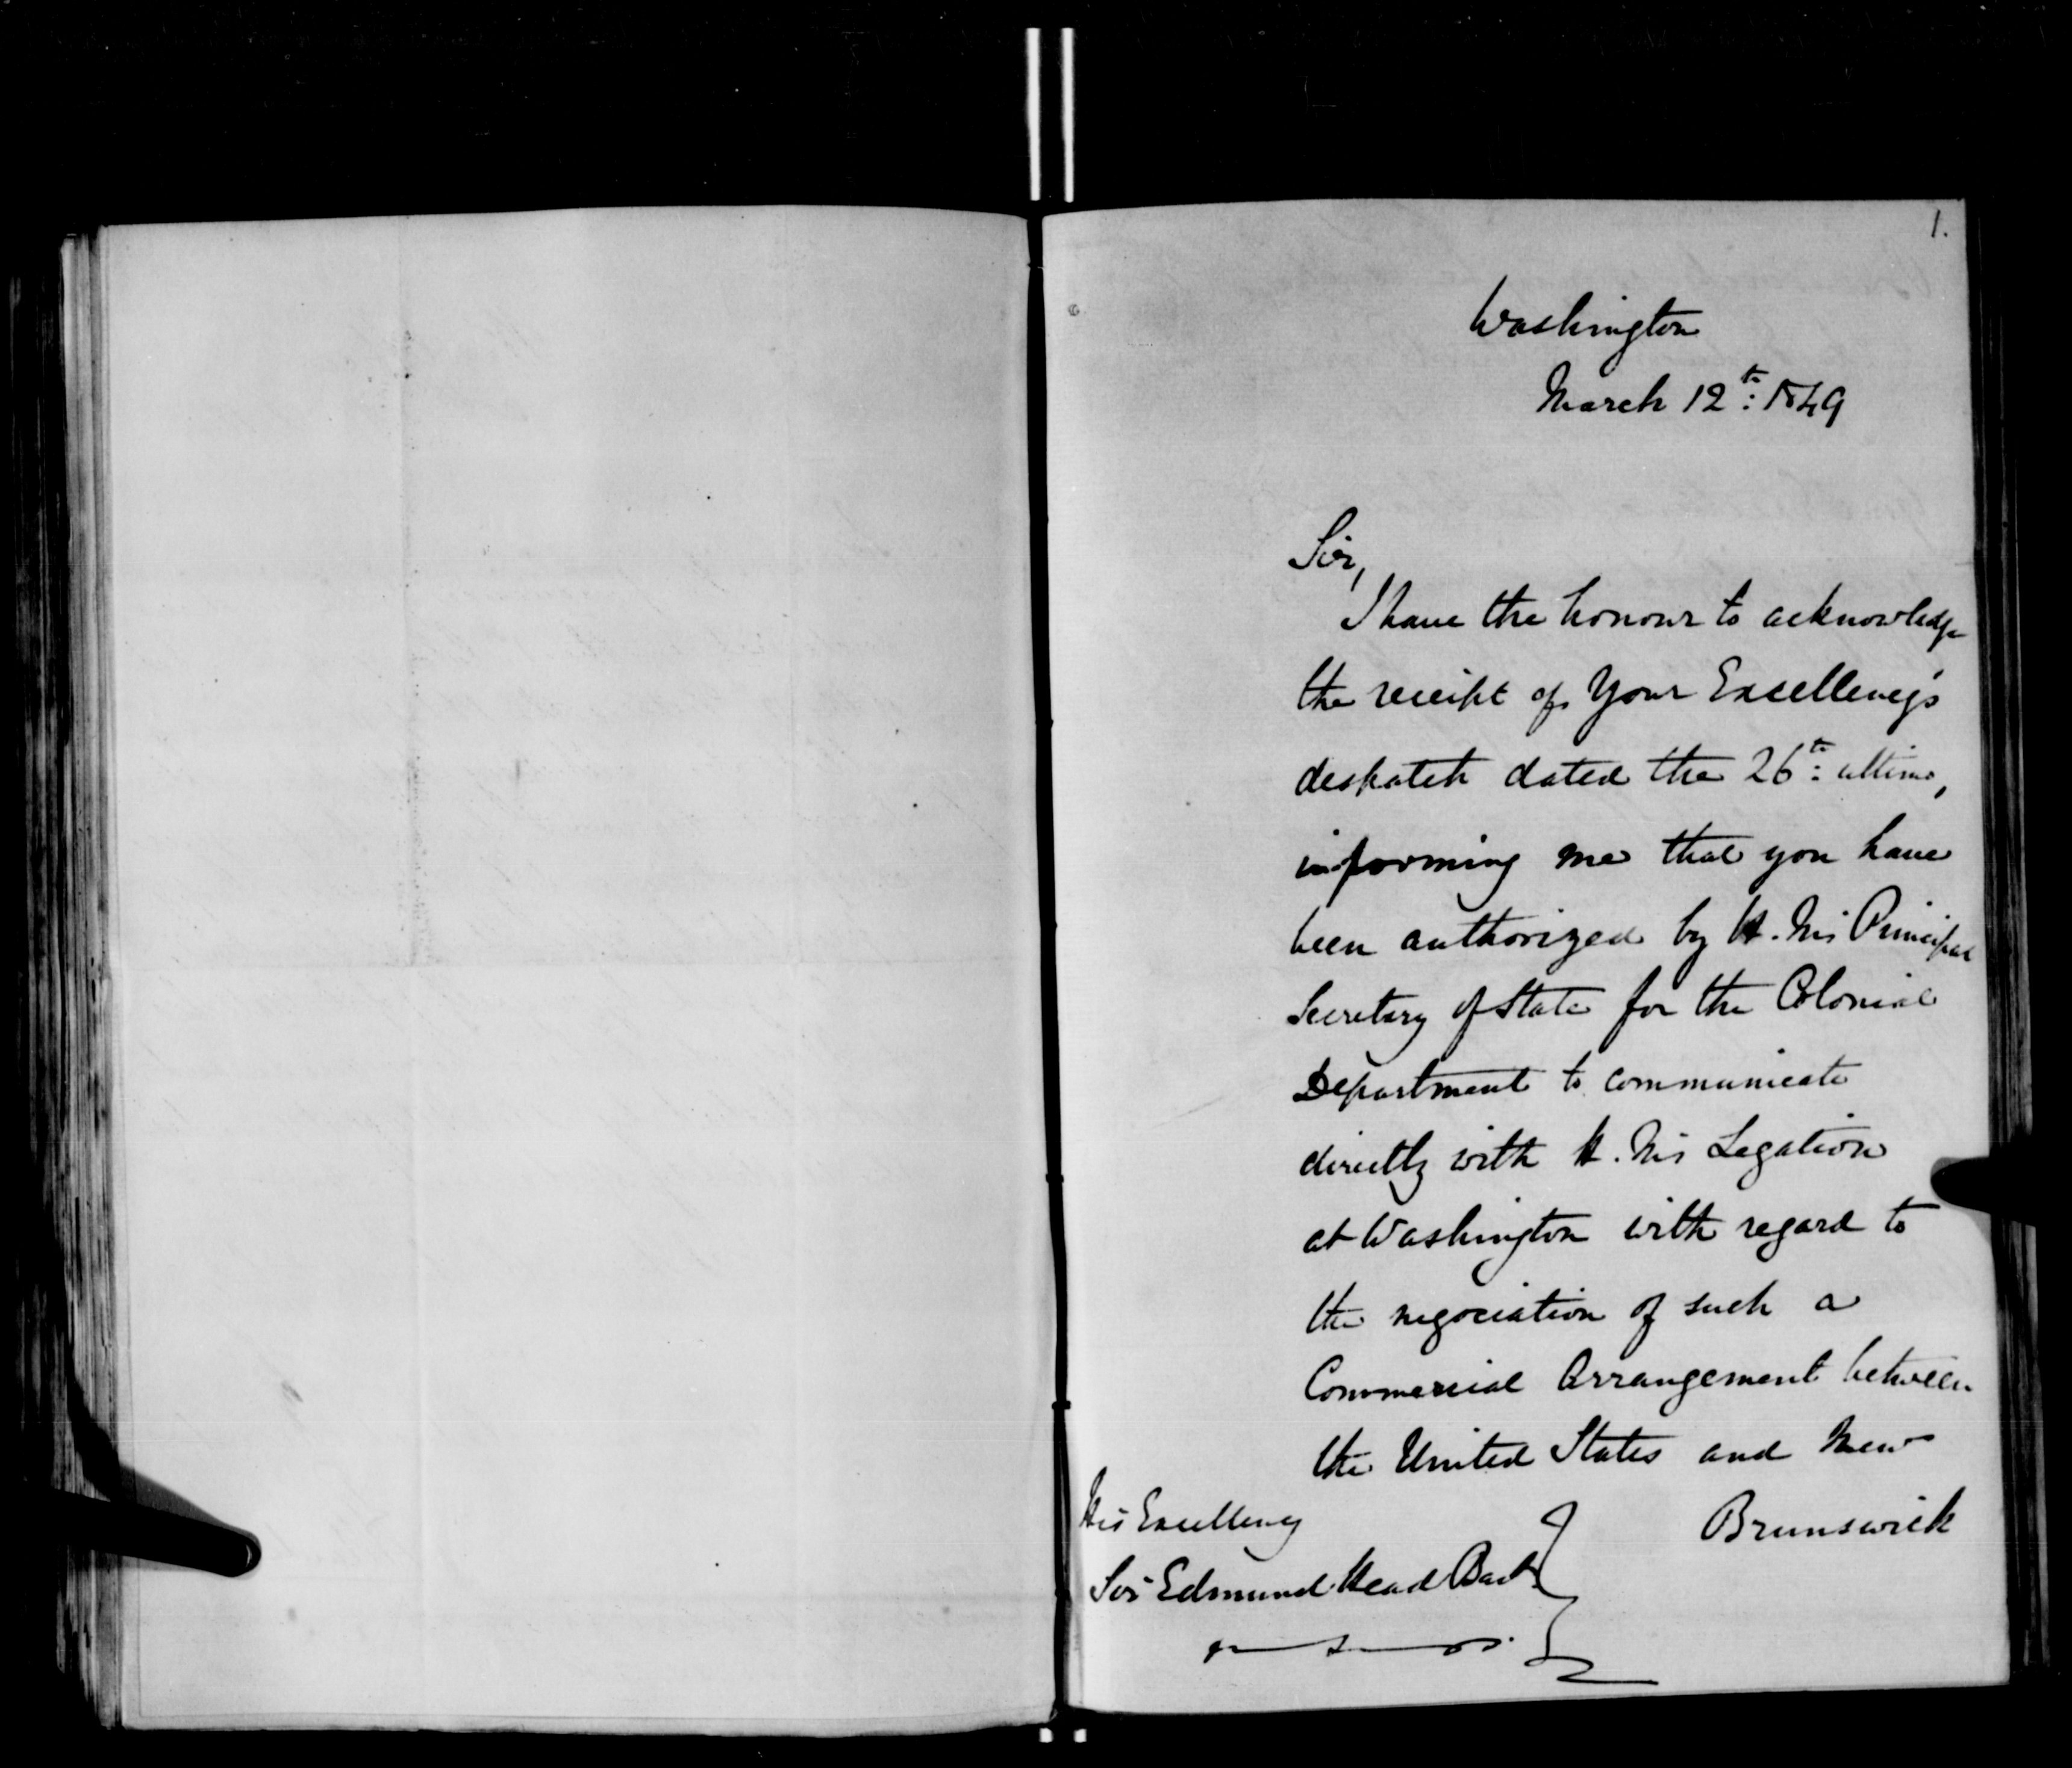 1.
Washington
March 12th: 1849
Sir,
I have the honour to acknowledge
the receipt of Your Excellency's
despatch dated the 26th: ultimo,
informing me that you have
been authorized by H. M's Principal
Secretary of State for the Colonial
Department to communicate
directly with H. M's Legation
at Washington with regard to
the negociation of such a
Commercial Arrangement between
the United States and New
Brunswick
His Excellency
Sir Edmund Head Bart